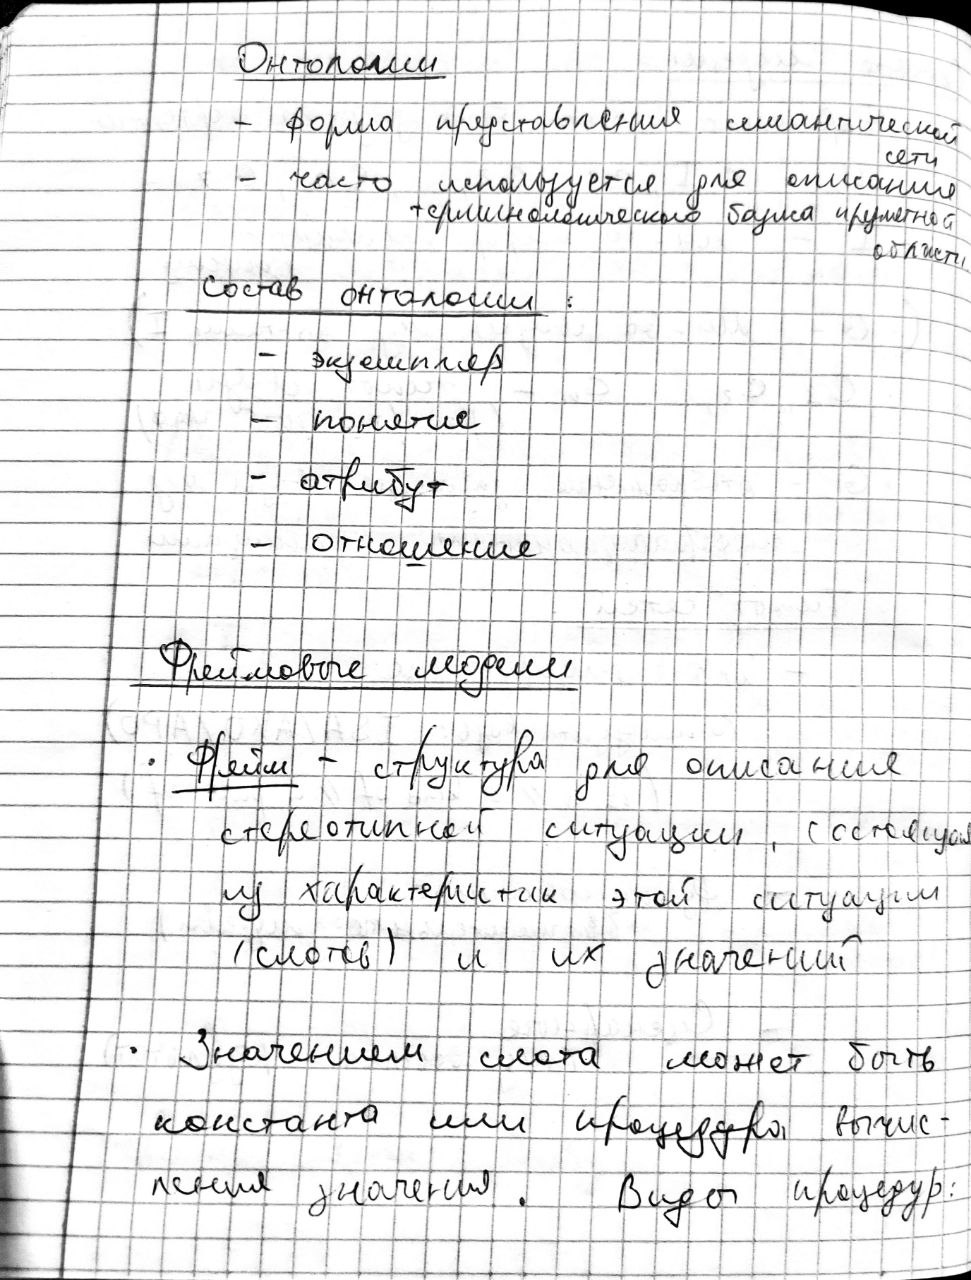 Онтологии
- форма представления семантической
сети
- часто используется для описания
терминологического базиса предметной
области
Состав онтологии :
- экземпляр
- понятие
- атрибут
- отношение
Фреймовые модели
· Фрейм - структура для описания
стереотипной ситуации, состоящая
из характеристик этой ситуации
(слотов) и их значений
· Значением слота может быть
константа или процедура вычис-
ления значения. Виды процедур: